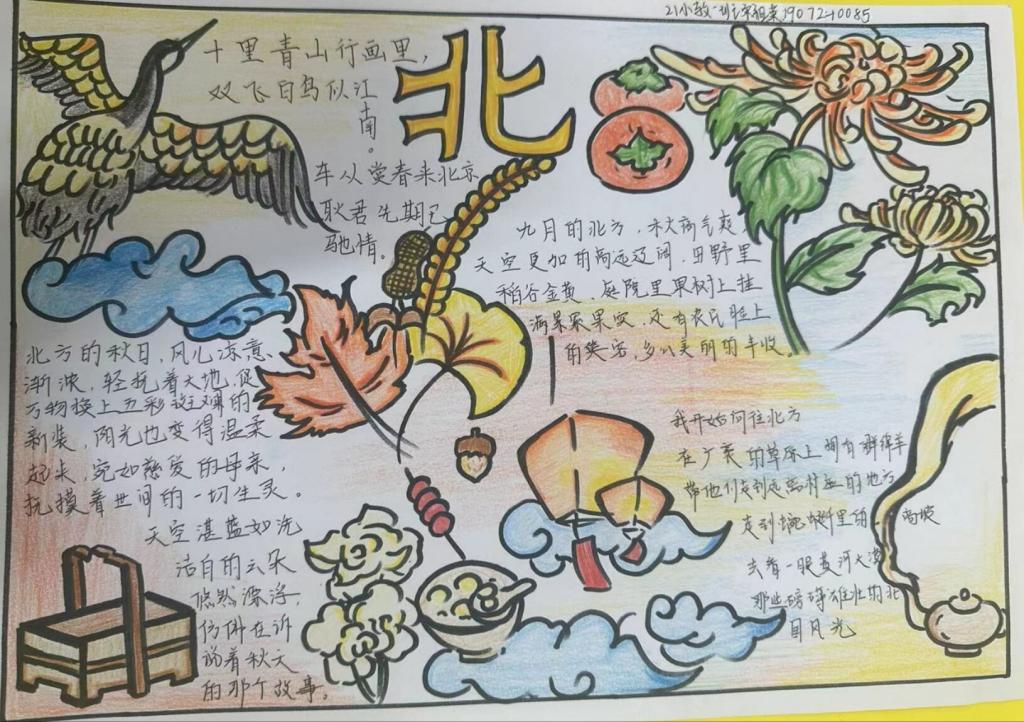 21小教一班
北
十里青山行画里,
双飞白鸟似江
南。
车从赏春来北京
耿君先期已
驰情。
九月的北方,秋高气爽
天空更加的高远辽阔,田野里
稻谷金黄,庭院里果树上挂
满累累果实,还有农民脸上
的笑容,多么美丽的丰收。
北方的秋日,风儿凉意
渐浓,轻抚着大地,促
万物换上五彩斑斓的
新装,阳光也变得温柔
起来,宛如慈爱的母亲,
抚摸着世间的一切生灵。
天空湛蓝如洗
洁白的云朵
悠然漂浮,
仿佛在诉
说着秋天
的那个故事。
我开始向往北方
在广袤的草原上拥有群绵羊
带他们走到远离村血的地方
走到蜿蜒千里的 高坡
去看一眼黄河大漠
那些磅礴雄壮的北
国风光